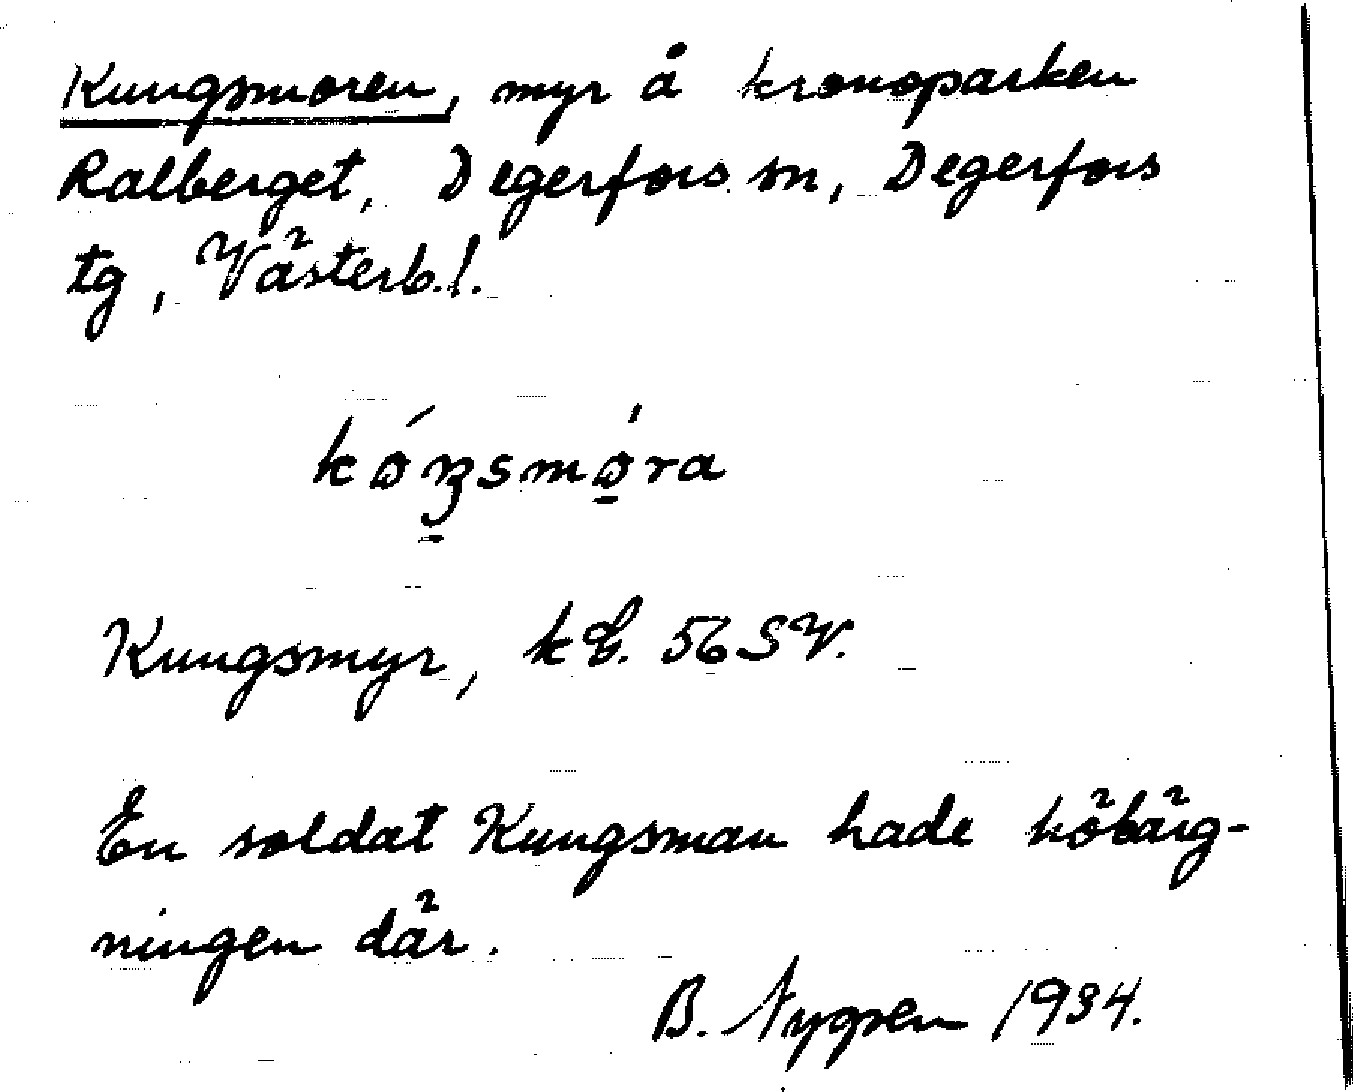 Kungsmoren, myr å kronoparken
Ralberget, Degerfors sn, Degerfors
tg, Västerb.l.
Kungsmyr, kb. 56 SV.
En soldat Kungsman hade höbärg-
ningen där.
B. Nygren 1934.